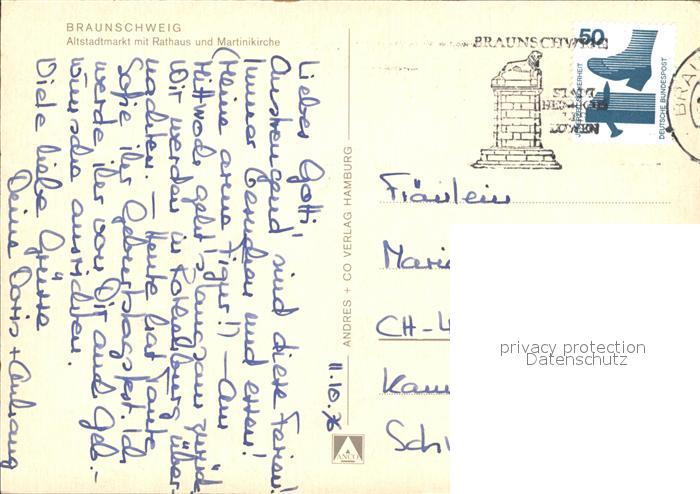 BRAUNSCHWEIG
Altstadtmarkt mit Rathaus und Martinikirche
Lieber Gotti,
Anstrengend sind diese Ferien!
Immer Besuchen und essen!
(Meine arme Figur!!) – Am
Mittwoch geht's langsam zurück.
Wir werden in Rothenburg über-
nachten. – Heute hat Tante
Sofie ihr Geburtstagsfest. Ich
werde ihr von Dir aus Geb.-
wünsche ausrichten.
Viele liebe Grüsse
Deine Doris + Anhang
11.10.76
ANDRES + CO VERLAG HAMBURG
ANCO
BRAUNSCHWEIG
STADT
HEINRICHS
DES
LÖWEN
50
DEUTSCHE BUNDESPOST
Fräulein
CH-4
privacy protection
Datenschutz